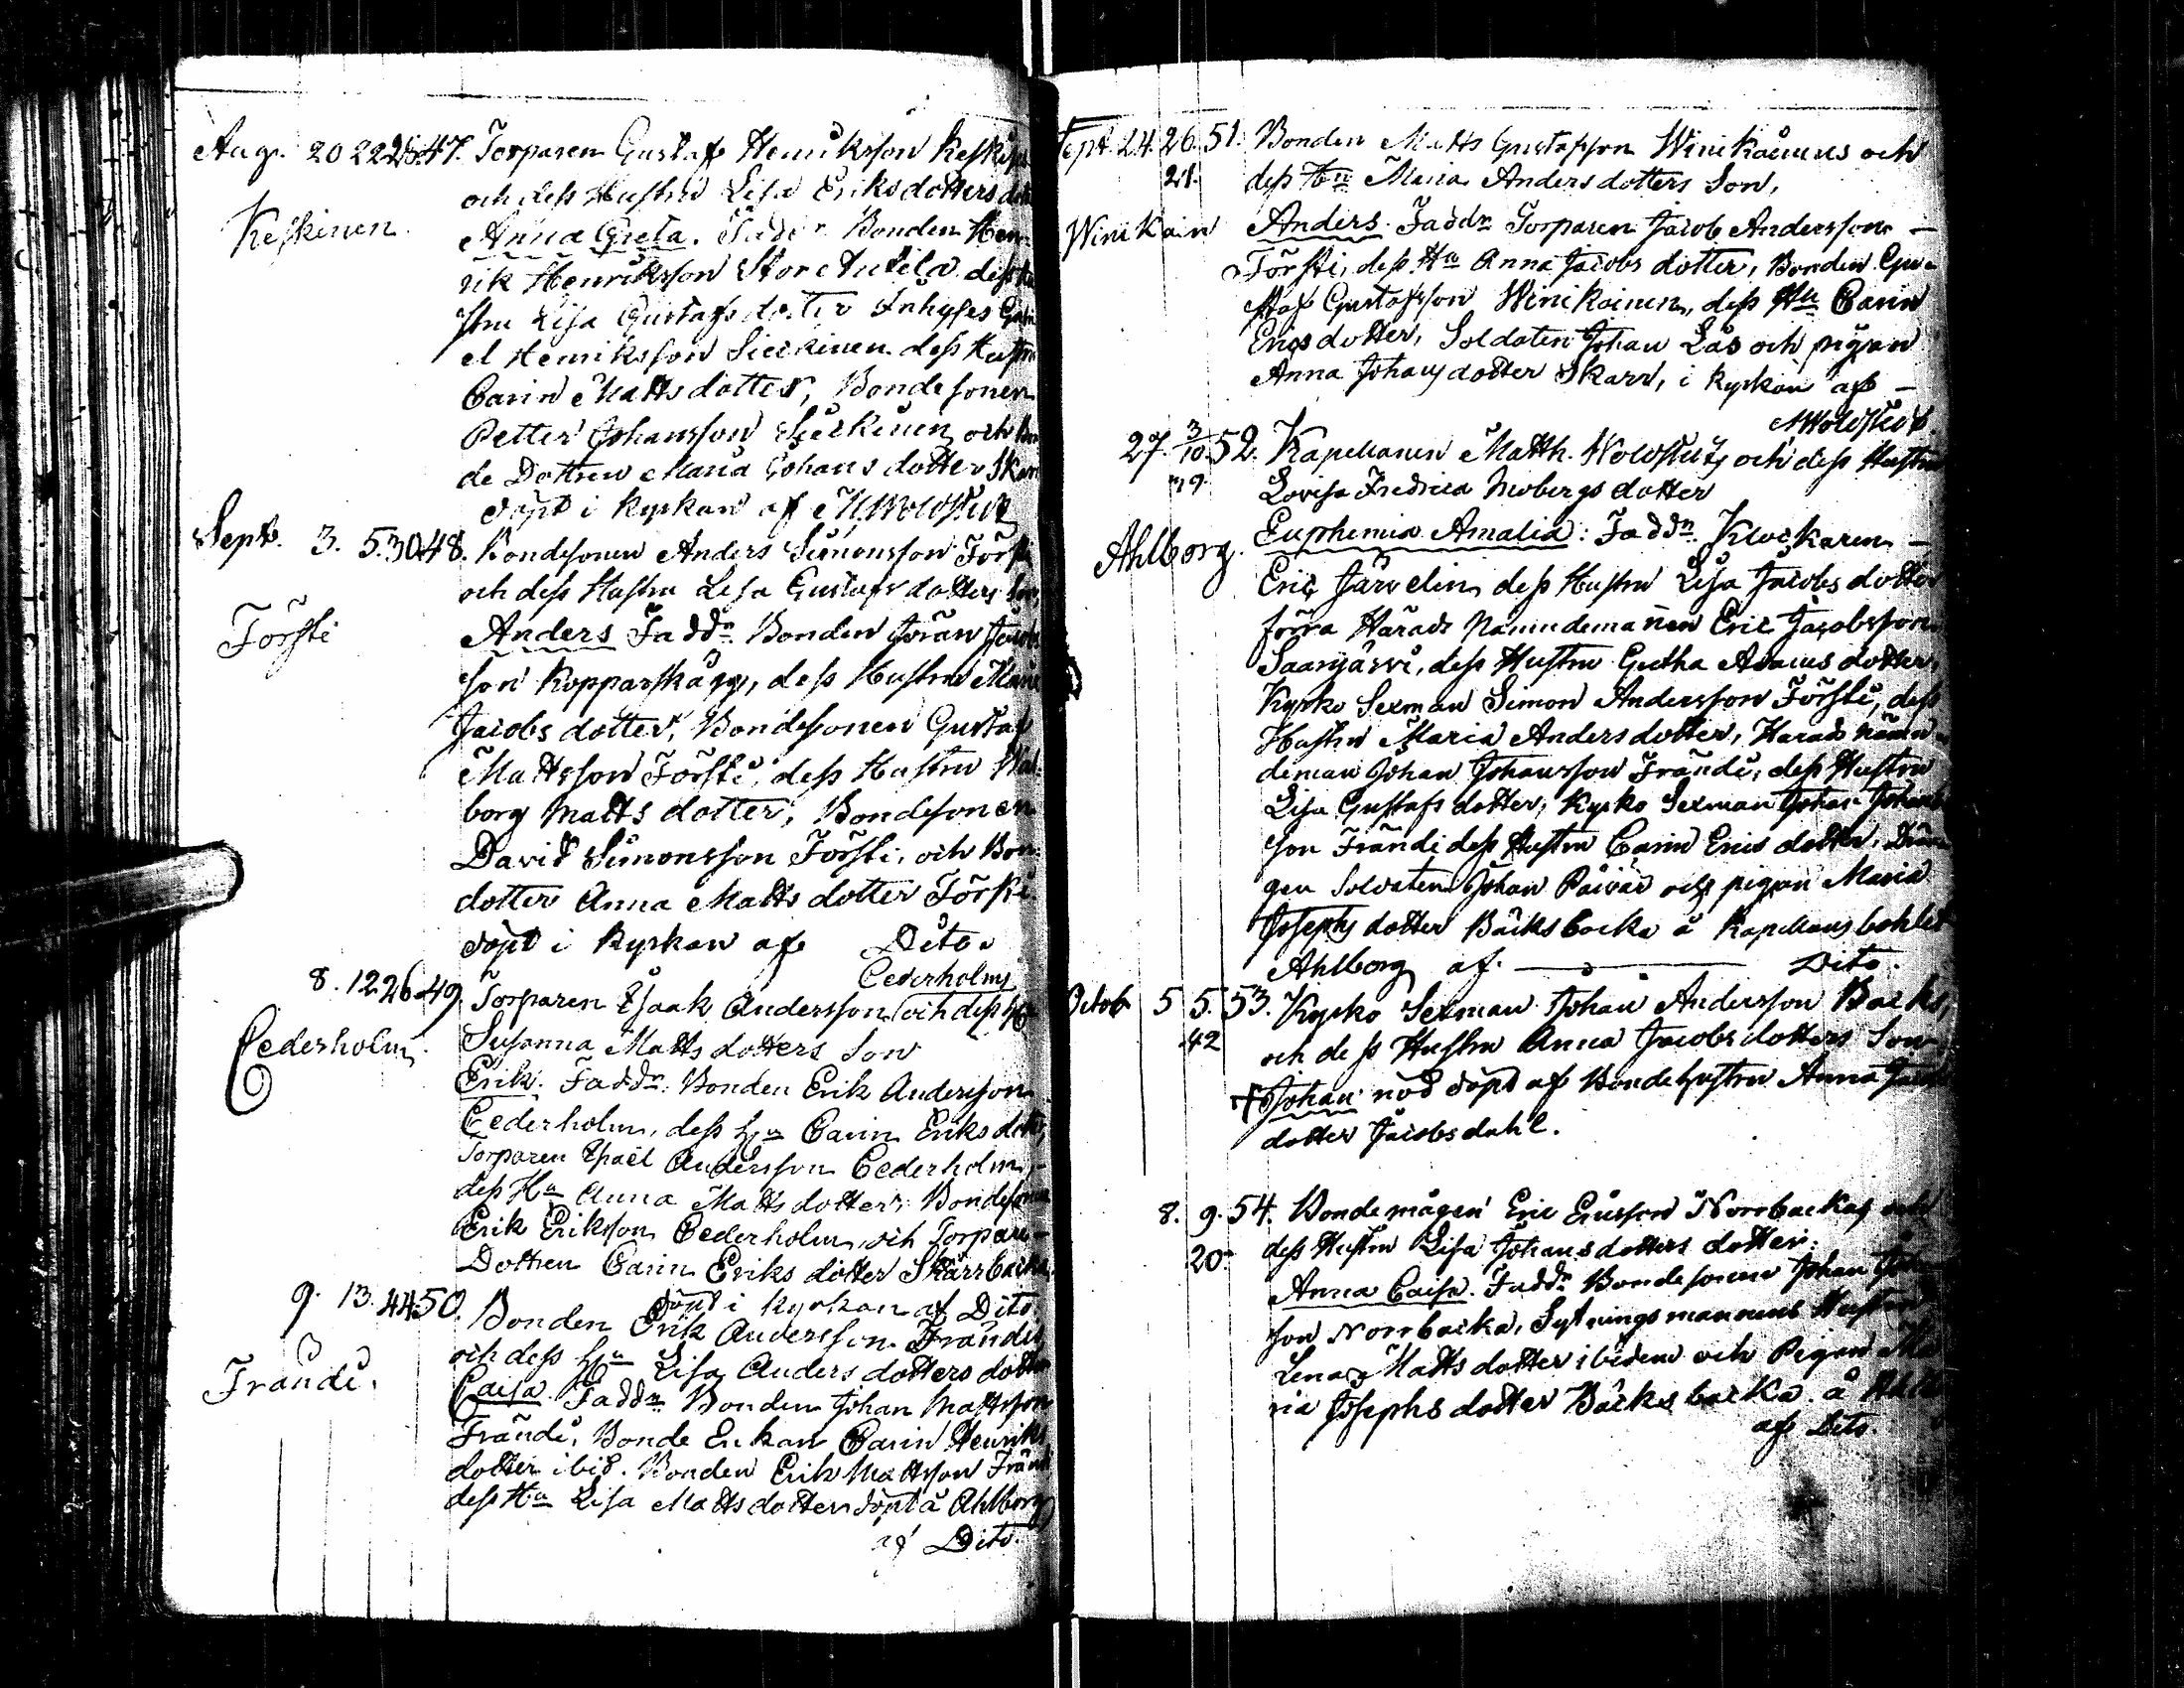 Aug. 20 22 25. 47. Torparen Gustaf Henriksson Keski
och dess Hustru Lisa Eriksdotters
Keskinen Anna Greta. Faddr Bonden Hen
rik Henriksson Stor Antila dess
stru Lisa Gustafsdotter Inhyses
el Henriksson Sieckinen dess Hustru
Carin Mattsdotter, Bondesonen
Petter Johansson Sieckinen och
de Dottren Maria Johansdotter
döpt i kyrkan af
Sept. 3. 5. 30 48. Bondesonen Anders Simonsson Försti
och dess Hustru Lisa Gustafsdotters Son,
Försti Anders Faddn Bonden Jöran Jacobs
son Kopparskägg, dess Hustru Maria
Jacobsdotter, Bondesonen Gustaf
Mattsson Försti, dess Hustru Wal
borg Mattsdotter, Bondesonen
David Simonsson Försti, och Bon
dotter Anna Mattsdotter Försti
döpt i kyrkan af Dito.
Cederholm
8. 12 26 49. Torparen Isaak Andersson och dess
Cederholm Susanna Mattsdotters Son
Erik. Faddn. Bonden Erik Andersson
Cederholm, dess Carin Eriksdotter,
Torparen Andersson Cederholm,
dess Hu Anna Mattsdotter, Bondesonen
Erik Eriksson Cederholm, och Torpare
Dottren Carin Eriksdotter Skarrbacka
döpt i kyrkan af Dito.
9. 13. 44 50. Bonden Erik Andersson Frändi
och dess Lisa Andersdotters dotter
Frändi. Caisa Faddn Bonden Johan Mattsson
Frändi, Bonde Enkan Carin Henriks
dotter ibid. Bonden Erik Mattsson Fränd
dess Hu Lisa Mattsdotter döpt å Ahlborg
af Dito.
Sept. 24. 26. 51. Bonden Matts Gustafsson Winikainens och
21. dess Hu Maria Andersdotters Son,
Winikain Anders. Faddn Torparen Jacob Andersson
Försti, dess Hu Anna Jacobsdotter, Bonden Gu
staf Gustafsson Winikainen, dess Hu Carin
Ericsdotter, Soldaten Johan Lås och pigan
Anna Johansdotter Skarr, i kyrkan af
27. 3/10. 52. Kapellanen Matth. och dess Hustru
29. Lovisa Fredrica Mobergs dotter
Ahlborg. Euphemia Amalia: Faddn. Klockaren
Eric Järvelin dess Hustru Lisa Jacobsdotter
förra Härads Nämndemannen Eric Jacobsson
Saarijärvi, dess Hustru Gretha dotter,
Kyrko Sexman Simon Andersson Försti, dess
Hustru Maria Andersdotter, Härads nämn
deman Johan Johansson Frändi, dess Hustru
Lisa Gustafsdotter, Kyrko Sexman Johan Johans
son Frändi dess Hustru Carin Ericsdotter, Drän
gen Soldaten Johan Päivär och pigan Maria
Josephsdotter Bäcksbacka å Kapellansbohlet
Ahlborg af Dito.
Octob 5 5. 53. Kyrko Sexman Johan Andersson Backs,
42 och dess Hustru Anna Jacobsdotters Son
† Johan nöd döpt af Bondehustrun Anna
dotter Jacobsdahl.
8. 9. 54. Bondemågen Eric Ericsson Norrbackas och
20. dess Hustru Lisa Johansdotters dotter:
Anna Caisa. Faddn Bondesonen Johan
son Norrbacka, Sytningsmannens Hustru
Lena Mattsdotter ibidem och Pigan Ma
ria Josephsdotter Bäcksbacka. å
af Dito.